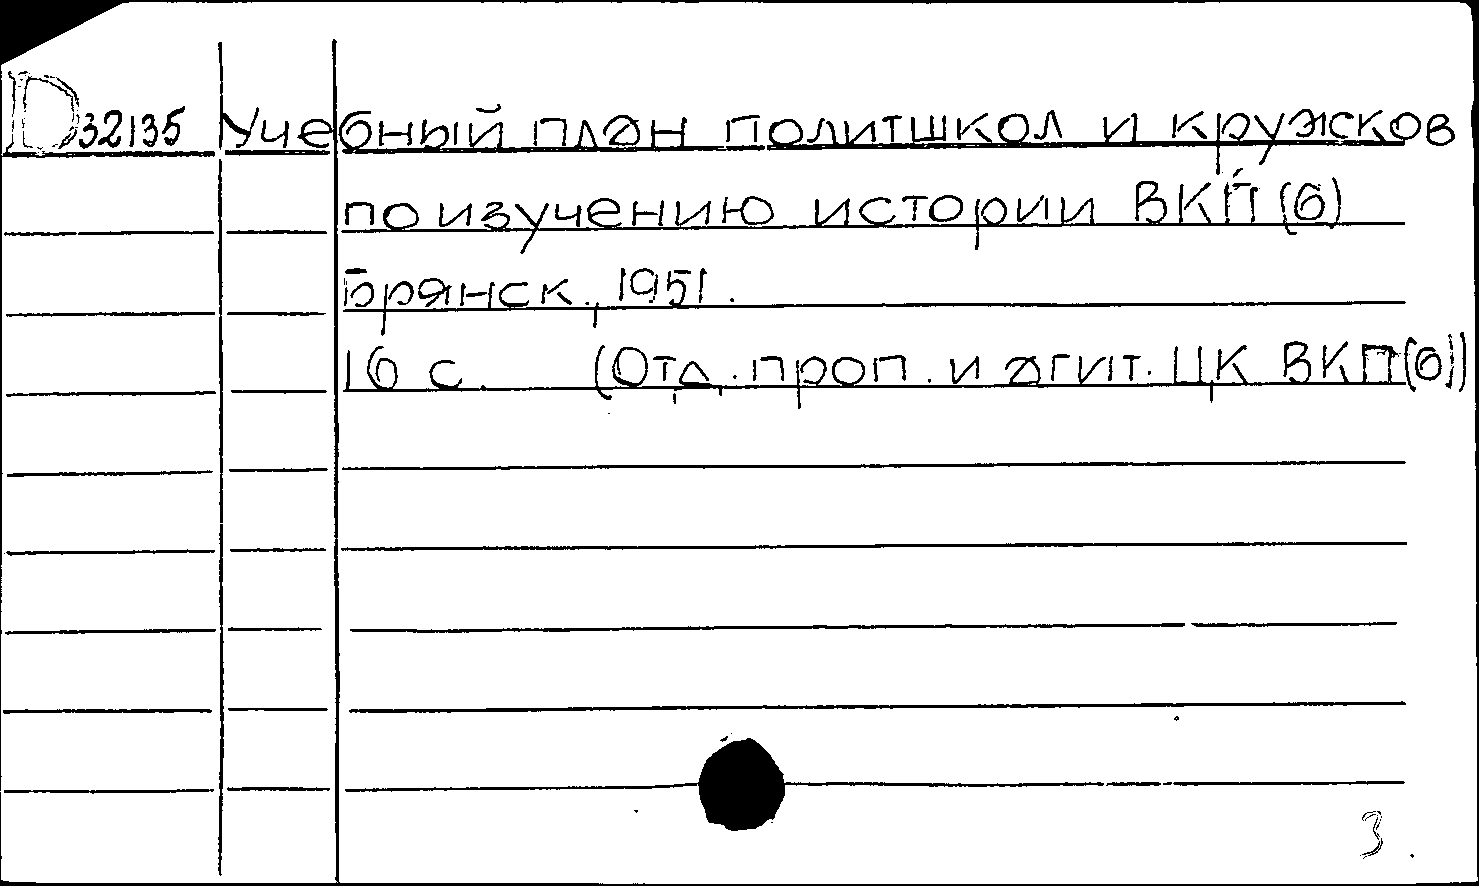 D32135 Учебный план политшкол и кружков
по изучению истории ВКП(б)
Брянск., 1951.
16 с. (Отд. проп. и агит. ЦК ВКП(б))
3